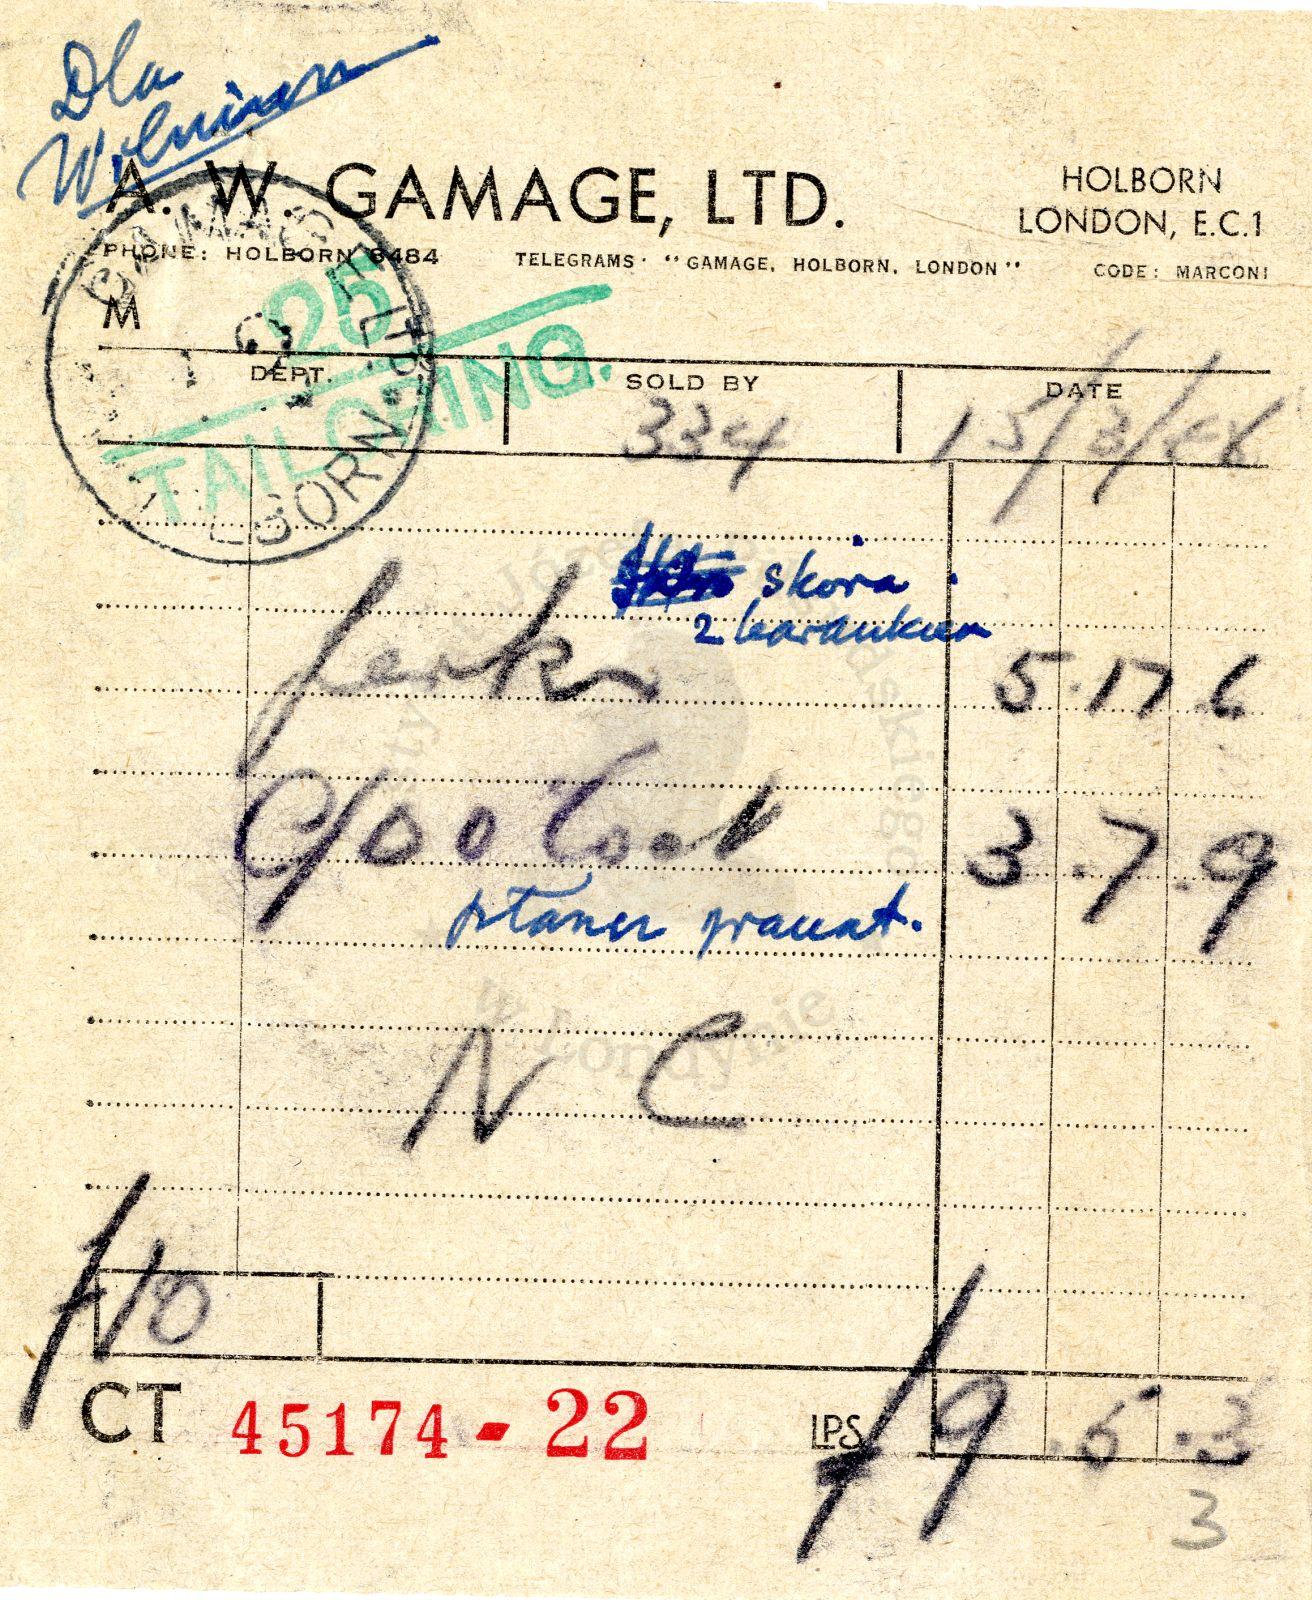 Dla
A. W. GAMAGE, LTD.
HOLBORN
LONDON, E.C.1
PHONE: HOLBORN 8484
TELEGRAMS: "GAMAGE, HOLBORN, LONDON"
CODE: MARCONI
M
GAMAGE LTD. HOLBORN
25
TAILORING.
DEPT.
SOLD BY
DATE
334
15/3/
skóra
2 barankiem
Jerkn
5.17.6
3.7.9
granat.
N C
£10
CT 45174-22
LPS
£9.5.3
3
Józefa Piłsudskiego
w Londynie